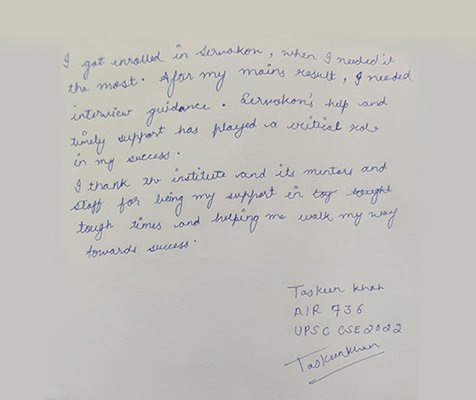 I got enrolled in Servokon, when I needed it
the most. After my mains result, I needed
interview guidance. Servokon's help and
timely support has played a critical role
in my success.
I thank the institute and its mentors and
staff for being my support in
tough times and helping me walk my way
towards success.
Taskeen Khan
AIR 736
UPSC CSE 2022
Taskeenkhan